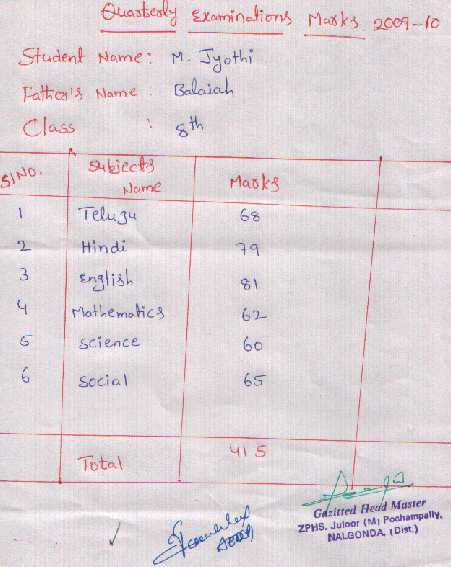 Quarterly Examinations Marks 2009-10
Student Name: M. Jyothi
Father's Name: Balaiah
Class : 8th
Sl No. Subjects Name Marks
1 Telugu 68
2 Hindi 79
3 English 81
4 Mathematics 62
5 Science 60
6 Social 65
Total 415
Gazitted Head Master
ZPHS. Juloor (M) Pochampally,
NALGONDA. (Dist.)